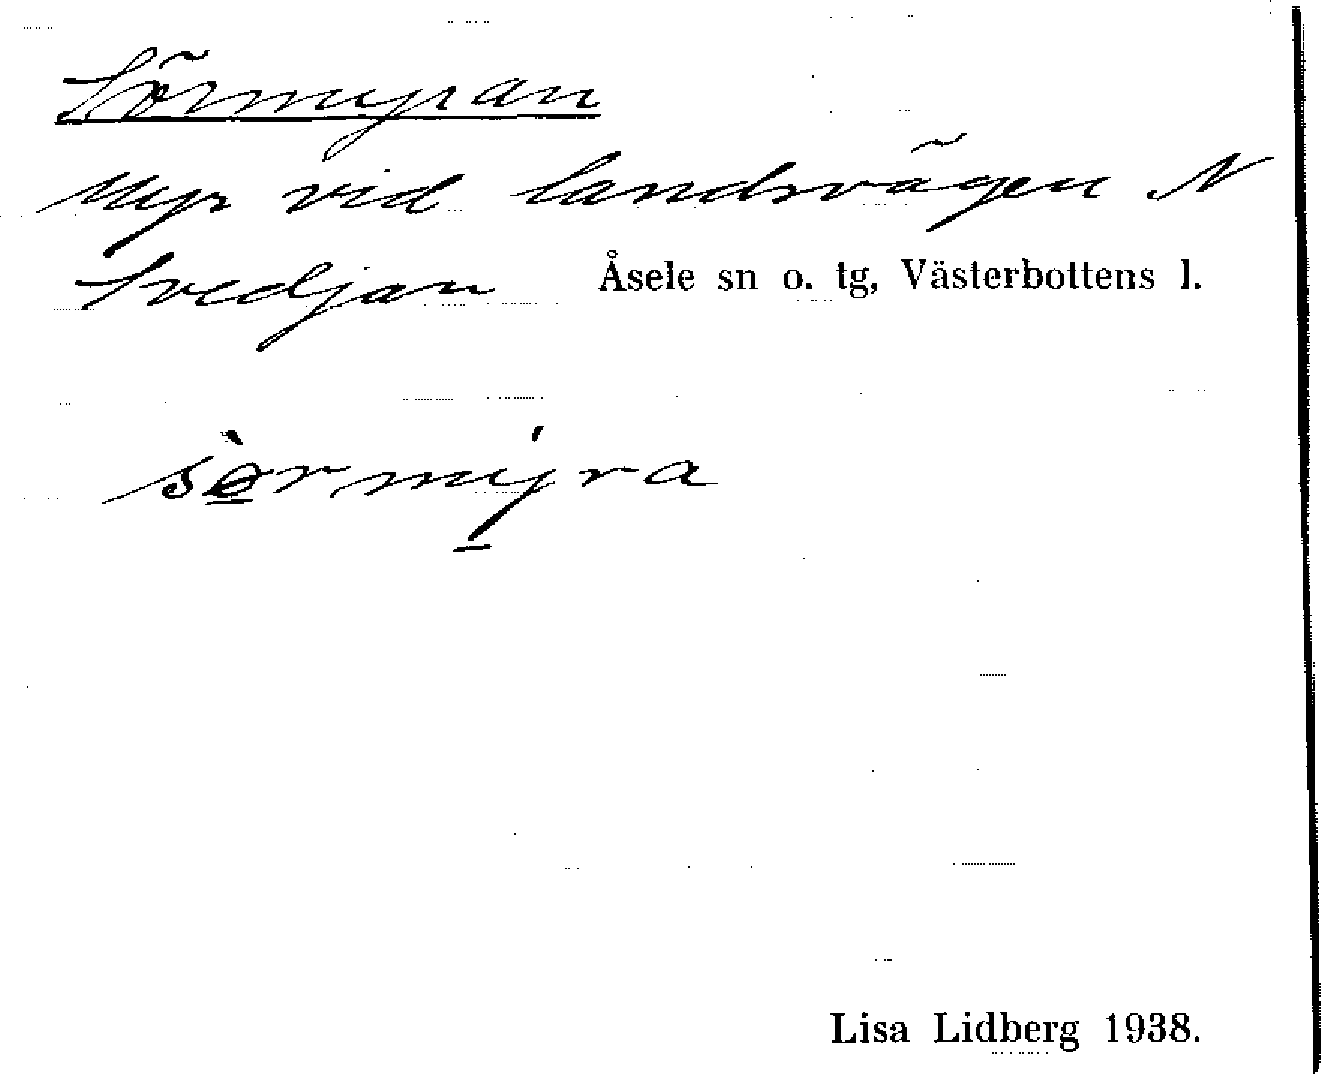 Sörmyran
Myr vid landsvägen N
Svedjan Åsele sn o. tg, Västerbottens l.
sò̱rmý̱ra
Lisa Lidberg 1938.